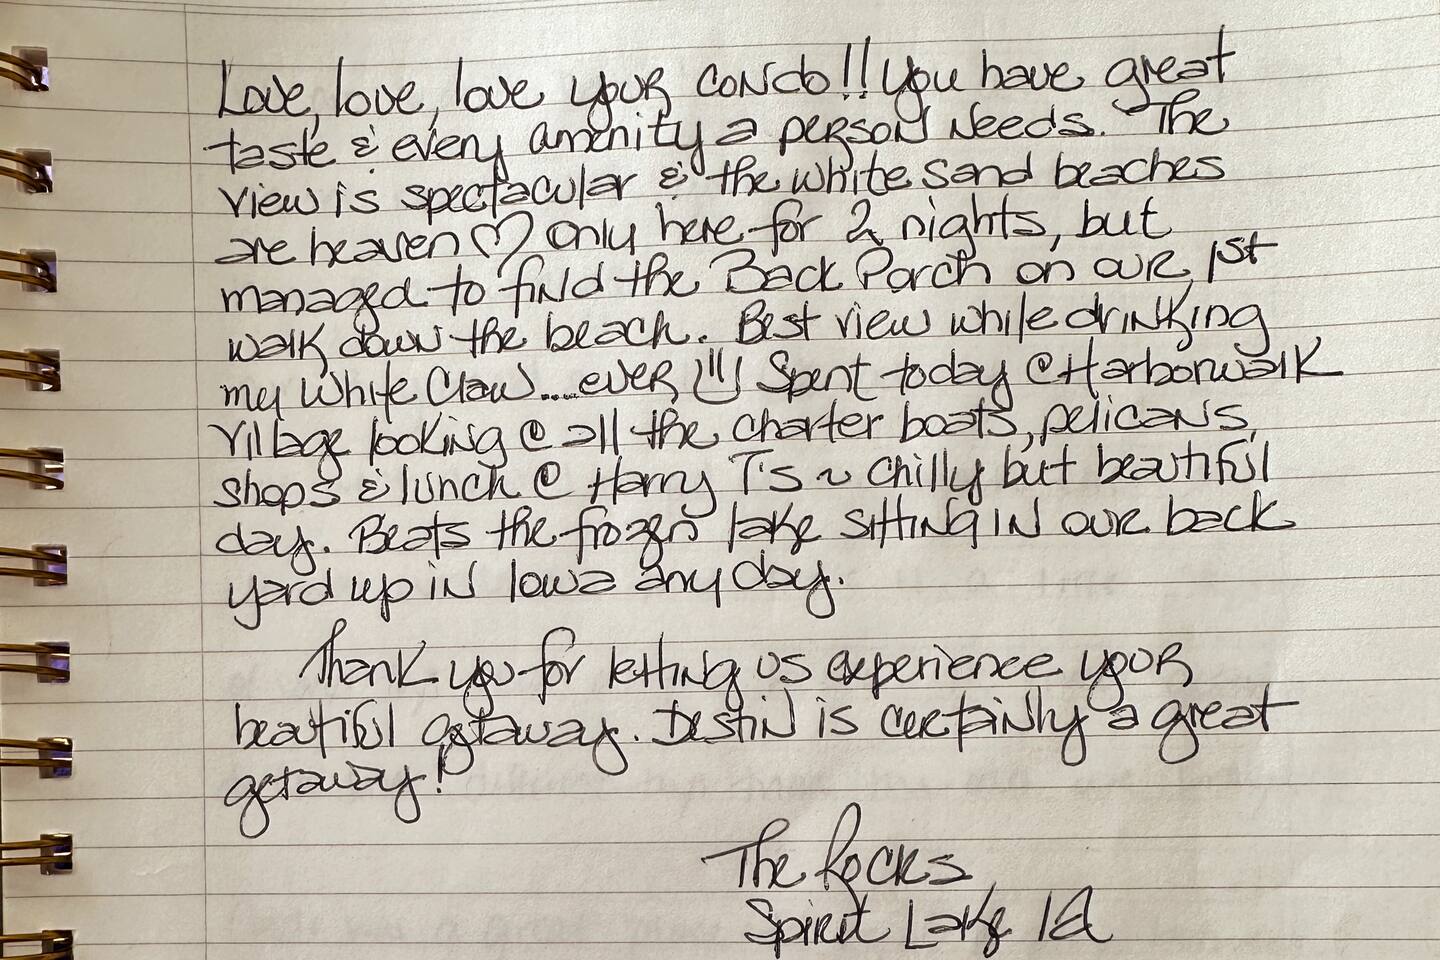 Love, love, love your condo!! You have great
taste & every amenity a person needs. The
view is spectacular & the white sand beaches
are heaven ♡ Only here for 2 nights, but
managed to find the Back Porch on our 1st
walk down the beach. Best view while drinking
my White Claw....ever Spent today @ Harborwalk
Village looking @ all the charter boats, pelicans,
shops & lunch @ Harry T's ~ Chilly but beautiful
day. Beats the frozen lake sitting in our back
yard up in Iowa any day.
Thank you for letting us experience your
beautiful getaway. Destin is certainly a great
getaway!
The Rocks
Spirit Lake IA